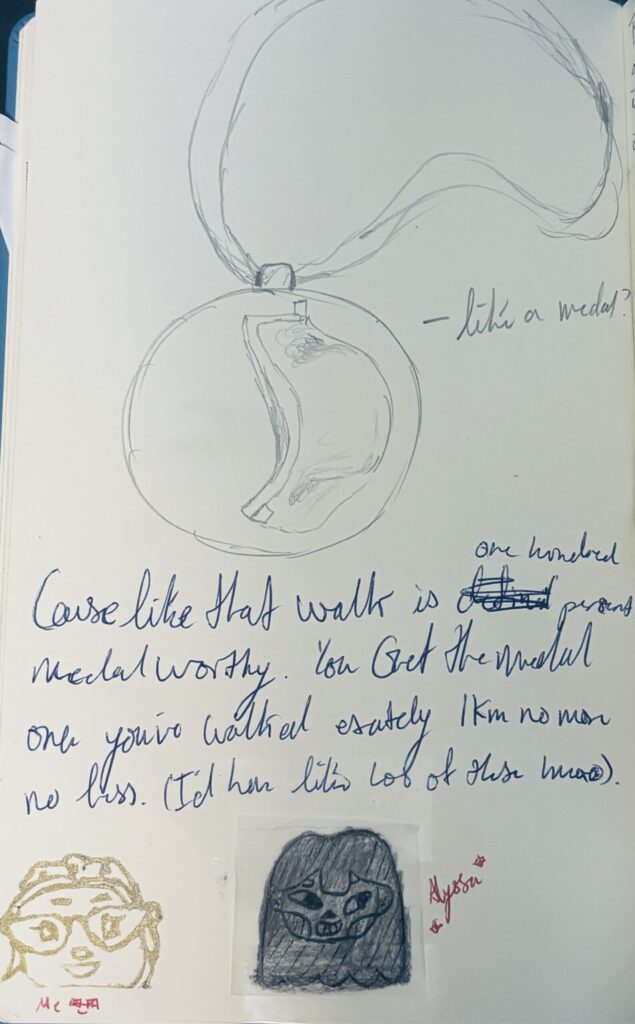 - like a medal?
one hundred
Cause like that walk is percent
medal worthy. You Get the medal
once you've walked exately 1km no more
no less. (I'd have like 108 of these lmao).
Alyssa
Me